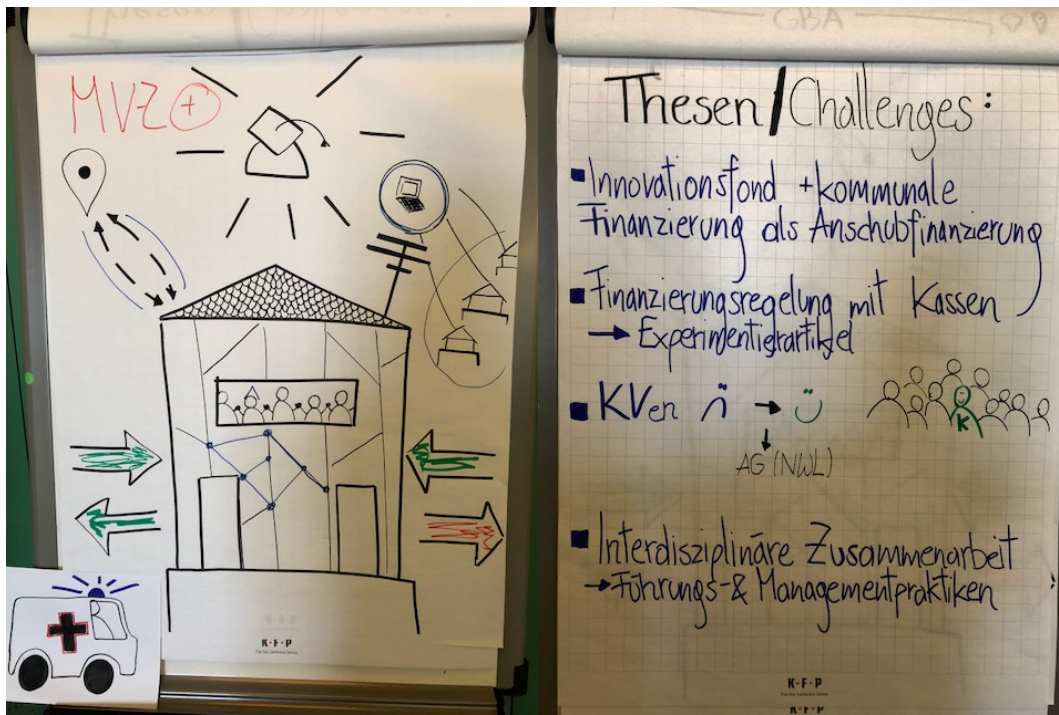 MVZ +
K·F·P
Thesen/Challenges:
GBA
Thesen/Challenges:
Innovationsfond + kommunale
Finanzierung als Anschubfinanzierung
Finanzierungsregelung mit Kassen
→ Experimentierartikel
KVen →
K
AG (NWL)
Interdisziplinäre Zusammenarbeit
→ Führungs- & Managementpraktiken
K·F·P
K·F·P